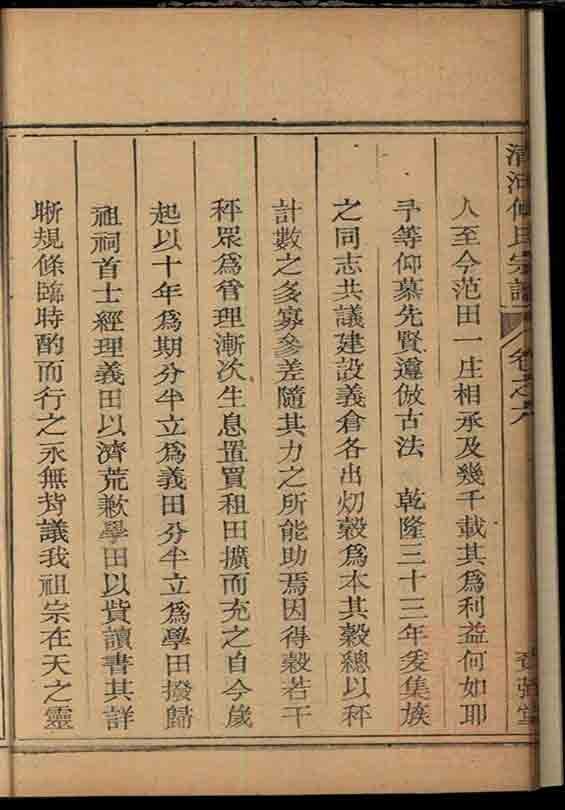 清河 氏宗譜 卷之六
人至今范田一庄相承及幾千載其爲利益何如耶
予等仰慕先賢遵倣古法 乾隆三十三年爰集族
之同志共議建設義倉各出刱穀爲本其穀總以秤
計數之多寡參差隨其力之所能助焉因得穀若干
秤眾爲管理漸次生息置買租田擴而充之自今歲
起以十年爲期分半立爲義田分半立爲學田撥歸
祖祠首士經理義田以濟荒歉學田以貲讀書其詳
晣規條臨時酌而行之永無背議我祖宗在天之靈